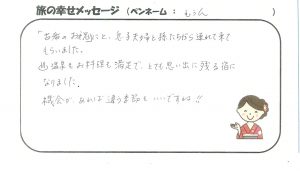 旅の幸せメッセージ (ペンネーム: もうん)
「お宿のお得感」と、息子夫婦と孫たちから連れて来て
もらいました。
♨温泉もお料理も満足で、とても思い出に残る宿に
なりました。
機会があれば違う季節もいいですね!!